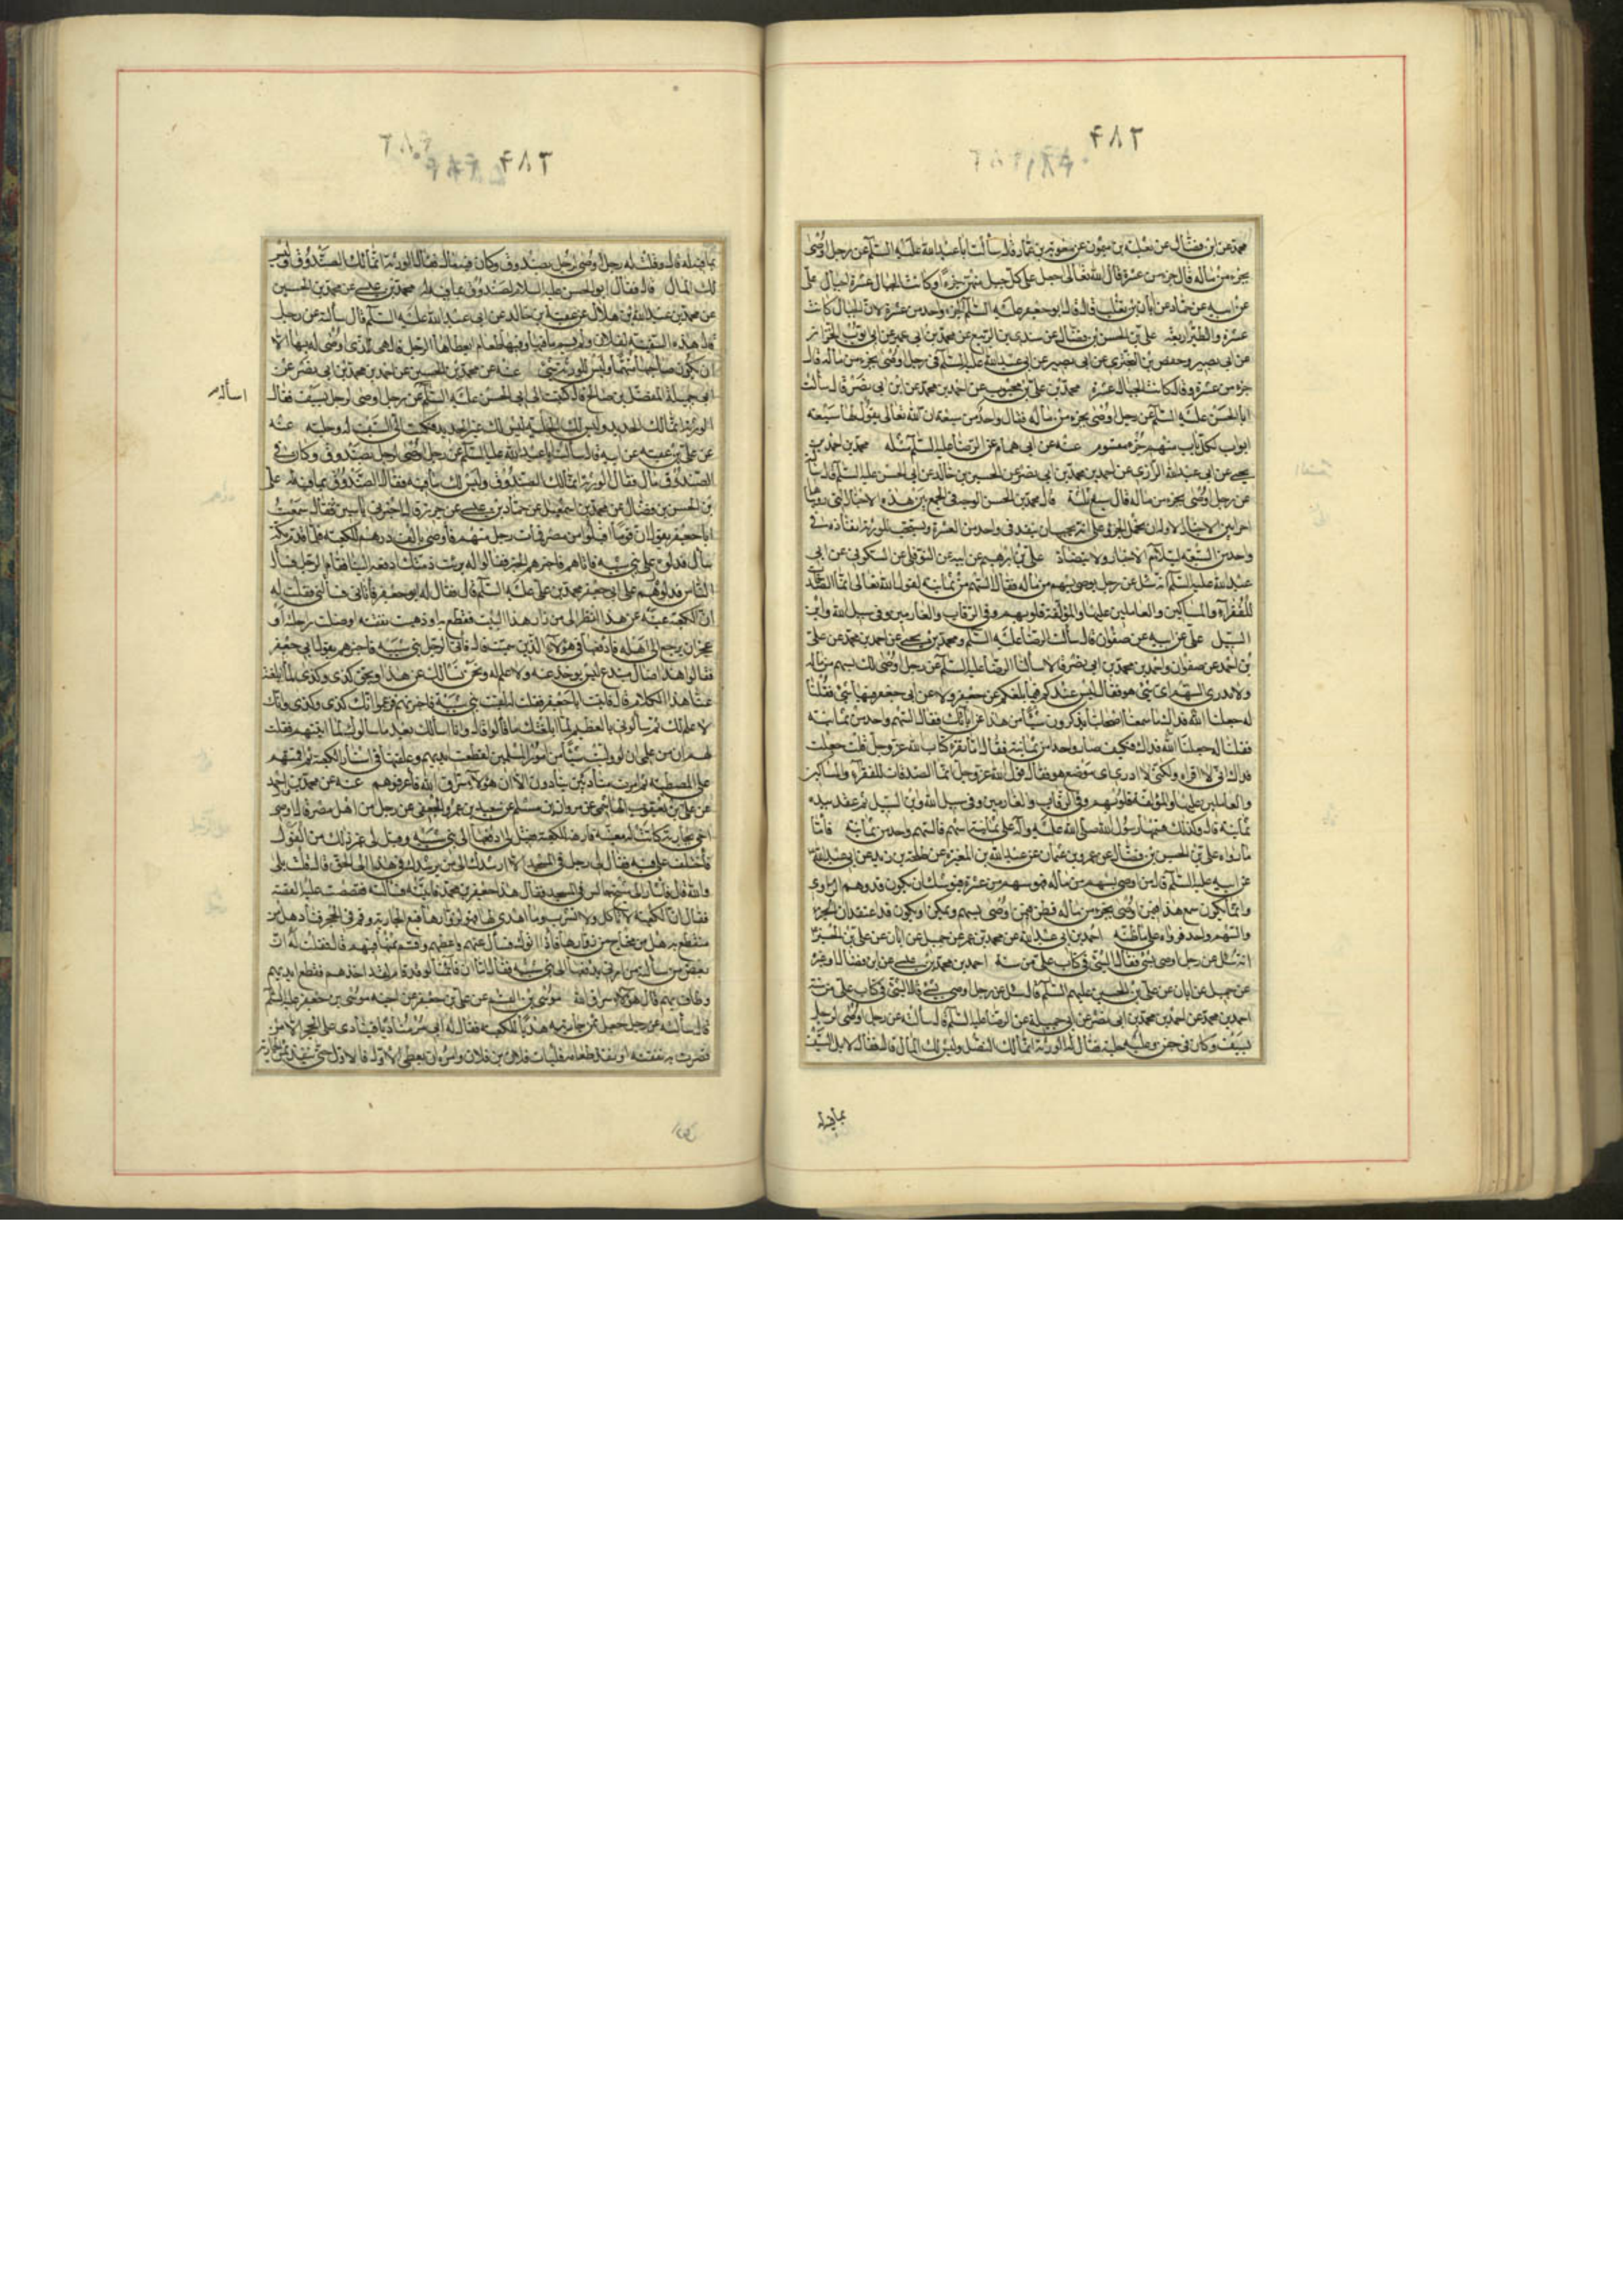 محمد عن ابن فضال عن ثعلبة بن ميمون عن معوية بن عمار قال سألت ابا عبد الله عليه السلم عن رجل اوصى
بجزء من ماله قال جزء من عشرة قال الله تعالى اجعل على كل جبل منهن جزءا وكانت الجبال عشرة اجبال على
عن ابيه عن حماد عن ابان بن تغلب قال قال ابو جعفر عليه السلم الجزء واحد من عشرة لان الجبال كانت
عشرة والطير اربعة علي بن الحسن بن فضال عن سندي بن الربيع عن محمد بن ابي عمير عن ابي ايوب الخزاز
عن ابي بصير وحفص بن البختري عن ابي بصير عن ابي عبد الله عليه السلم في رجل اوصى بجزء من ماله قال
جزء من عشرة وقال كانت الجبال عشرة محمد بن علي بن محبوب عن احمد بن محمد عن ابن ابي نصر قال سألت
ابا الحسن عليه السلم عن رجل اوصى بجزء من ماله فقال واحد من سبعة ان الله تعالى يقول لها سبعة
ابواب لكل باب منهم جزء مقسوم عنه عن ابي همام عن الرضا عليه السلم مثله محمد بن احمد بن
يحيى عن ابي عبد الله الرازي عن احمد بن محمد بن ابي نصر عن الحسين بن خالد عن ابي الحسن عليه السلم قال سألته
عن رجل اوصى بجزء من ماله قال سبع ثلثه قال محمد بن الحسن الوجه في الجمع بين هذه الاخبار التي رويناها
واحد من السبعة لتتلائم الاخبار ولا تتضاد علي بن ابرهيم عن ابيه عن النوفلي عن السكوني عن ابي
عبد الله عليه السلم انه سئل عن رجل يوصي بسهم من ماله فقال السهم من ثمانية لقول الله تعالى انما الصدقات
للفقراء والمساكين والعاملين عليها والمؤلفة قلوبهم وفي الرقاب والغارمين وفي سبيل الله وابن
السبيل علي عن ابيه عن صفوان قال سألت الرضا عليه السلم ومحمد بن يحيى عن احمد بن محمد عن علي
بن احمد عن صفوان واحمد بن محمد بن ابي نصر قالا سألنا الرضا عليه السلم عن رجل اوصى لك بسهم من ماله
ولا ندري السهم اي شئ هو فقال ليس عندكم فيما بلغكم عن جعفر ولا عن ابي جعفر فيها شئ فقلنا
له جعلنا الله فداك ما سمعنا اصحابنا يذكرون شيئا من هذا عن ابائك فقال السهم واحد من ثمانية
فقلنا له جعلنا الله فداك فكيف صار واحدا من ثمانية فقال اما تقرء كتاب الله عز وجل قلت جعلت
فداك اني لاقراه ولكني لا ادري اي موضع هو فقال قول الله عز وجل انما الصدقات للفقراء والمساكين
والعاملين عليها والمؤلفة قلوبهم وفي الرقاب والغارمين وفي سبيل الله وابن السبيل ثم عقد بيده
ثمانية قال وكذلك قسمها رسول الله صلى الله عليه واله على ثمانية اسهم فالسهم واحد من ثمانية فاما
ما رواه علي بن الحسن بن فضال عن عمرو بن عثمان عن عبد الله بن المغيرة عن طلحة بن زيد عن ابي عبد الله
عن ابيه عليه السلم قال من اوصى بسهم من ماله فهو سهم من عشرة فيوشك ان يكون قد وهم الراوي
والسهم واحد فرواه على ما ظنه احمد بن ابي عبد الله عن محمد بن عمر عن جميل عن ابان عن علي بن الحسين
انه سئل عن رجل اوصى بشئ فقال الشئ في كتاب علي من ستة احمد بن محمد بن عيسى عن ابن فضال او غيره
عن جميل عن ابان عن علي بن الحسين عليهم السلم قال سئل عن رجل اوصى بشئ قال الشئ في كتاب علي من ستة
احمد بن محمد عن احمد بن محمد بن ابي نصر عن ابي جميلة عن الرضا عليه السلم قال سألته عن رجل اوصى لرجل
بسيف وكان في جفن وعليه حلية فقال له الورثة انما لك النصل وليس لك المال قال فقال لا بل السيف
بما فيه له
بما فيه له قال وقلت له رجل اوصى لرجل بصندوق وكان فيه مال فقال الورثة انما لك الصندوق وليس
لك المال قال فقال ابو الحسن عليه السلام الصندوق بما فيه له محمد بن عيسى عن محمد بن الحسين
عن محمد بن عبد الله بن هلال عن عقبة بن خالد عن ابي عبد الله عليه السلم قال سألته عن رجل
قال هذه السفينة لفلان ولم يسم ما فيها وفيها طعام ايعطاها الرجل قال هي للذي اوصى له بها الا
ان يكون صاحبها متهما وليس للورثة شئ عنه عن محمد بن الحسين عن احمد بن محمد بن ابي نصر عن
ابي جميلة المفضل بن صالح قال كتبت الى ابي الحسن عليه السلم عن رجل اوصى لرجل بسيف فقال
اسأله
الورثة انما لك الحديد وليس لك الحلية ليس لك غير الحديد فكتب الي السيف له وحليته عنه
عن علي بن عقبة عن ابيه قال سألت ابا عبد الله عليه السلم عن رجل اوصى لرجل بصندوق وكان في
الصندوق مال فقال الورثة انما لك الصندوق وليس لك ما فيه فقال الصندوق بما فيه له علي
بن الحسن بن فضال عن محمد بن اسمعيل عن حماد بن عيسى عن حريز قال اخبرني ياسين فقال سمعت
ابا جعفر يقول ان قوما اقبلوا من مصر فمات رجل منهم فأوصى بالف درهم للكعبة فلما قدم مكة
سأل فدلوه على بني شيبة فاتاهم فاخبرهم الخبر فقالوا له برئت ذمتك ادفعه الينا فقام الرجل فسأل
الناس فدلوهم على ابي جعفر محمد بن علي عليه السلم قال فقال له ابو جعفر فأتاني فسألني فقلت له
ان الكعبة غنية عن هذا انظر الى من زار هذا البيت فقطع به او ذهبت نفقته او ضلت راحلته او
عجز ان يرجع الى اهله فادفعها في هؤلاء الذين سميت قال فاتى الرجل بني شيبة فاخبرهم بقول ابي جعفر
فقالوا هذا ضال مبتدع ليس يؤخذ عنه ولا علم له ونحن نسألك عن هذا وبحق كذى وكذى لما ابلغته
عنا هذا الكلام قال فاتيت ابا جعفر فقلت له لقيت بني شيبة فاخبرتهم فزعموا انك كذى وكذى وانك
لا علم لك ثم سألوني بالعظيم لما ابلغتك ما قالوا قال وانا اسألك بعد ما سألوك لما اتيتهم فقلت
لهم ان من علمي ان لو وليت شيئا من امور المسلمين لقطعت ايديهم وعلقتها في استار الكعبة ثم اقمتهم
على المصطبة ثم امرت مناديين يناديون الا ان هؤلاء سراق الله فاعرفوهم عنه عن محمد بن احمد
عن علي بن يعقوب الهاشمي عن مروان بن مسلم عن سعيد بن عمرو الجعفي عن رجل من اهل مصر قال اوصى
اخي بجارية كانت له مغنية فارهة للكعبة فقيل لي ادفعها الى بني شيبة وقيل لي غير ذلك من القول
فاختلف علي فيه فقال لي رجل في المسجد الا ارشدك الى من يرشدك في هذا الى الحق قال قلت بلى
والله قال فاشار الى شيخ جالس في المسجد فقال هذا جعفر بن محمد فاتيته فسألته فقصصت عليه القصة
فقال ان الكعبة لا تأكل ولا تشرب وما اهدي لها فهو لزوارها فبع الجارية وقم في الحجر فناد هل من
منقطع به هل من محتاج من زوارها فاذا اتوك فسأل عنهم واعطهم واقسم ثمنها فيهم قال فقلت له ان
بعض من سألته امرني بدفعها الى بني شيبة فقال اما ان قائمنا لو قد قام لقد اخذهم فقطع ايديهم
وطاف بهم قال هؤلاء سراق الله موسى بن القسم عن علي بن جعفر عن اخيه موسى بن جعفر عليه السلم
قال سألته عن رجل جعل ثمن جاريته هديا للكعبة فقال له ابي مر مناديا فينادي على الحجر الا من
قصرت به نفقته او نفد طعامه فليأت فلان بن فلان وامره ان يعطي الاول فالاول حتى ينفد ثمن الجارية